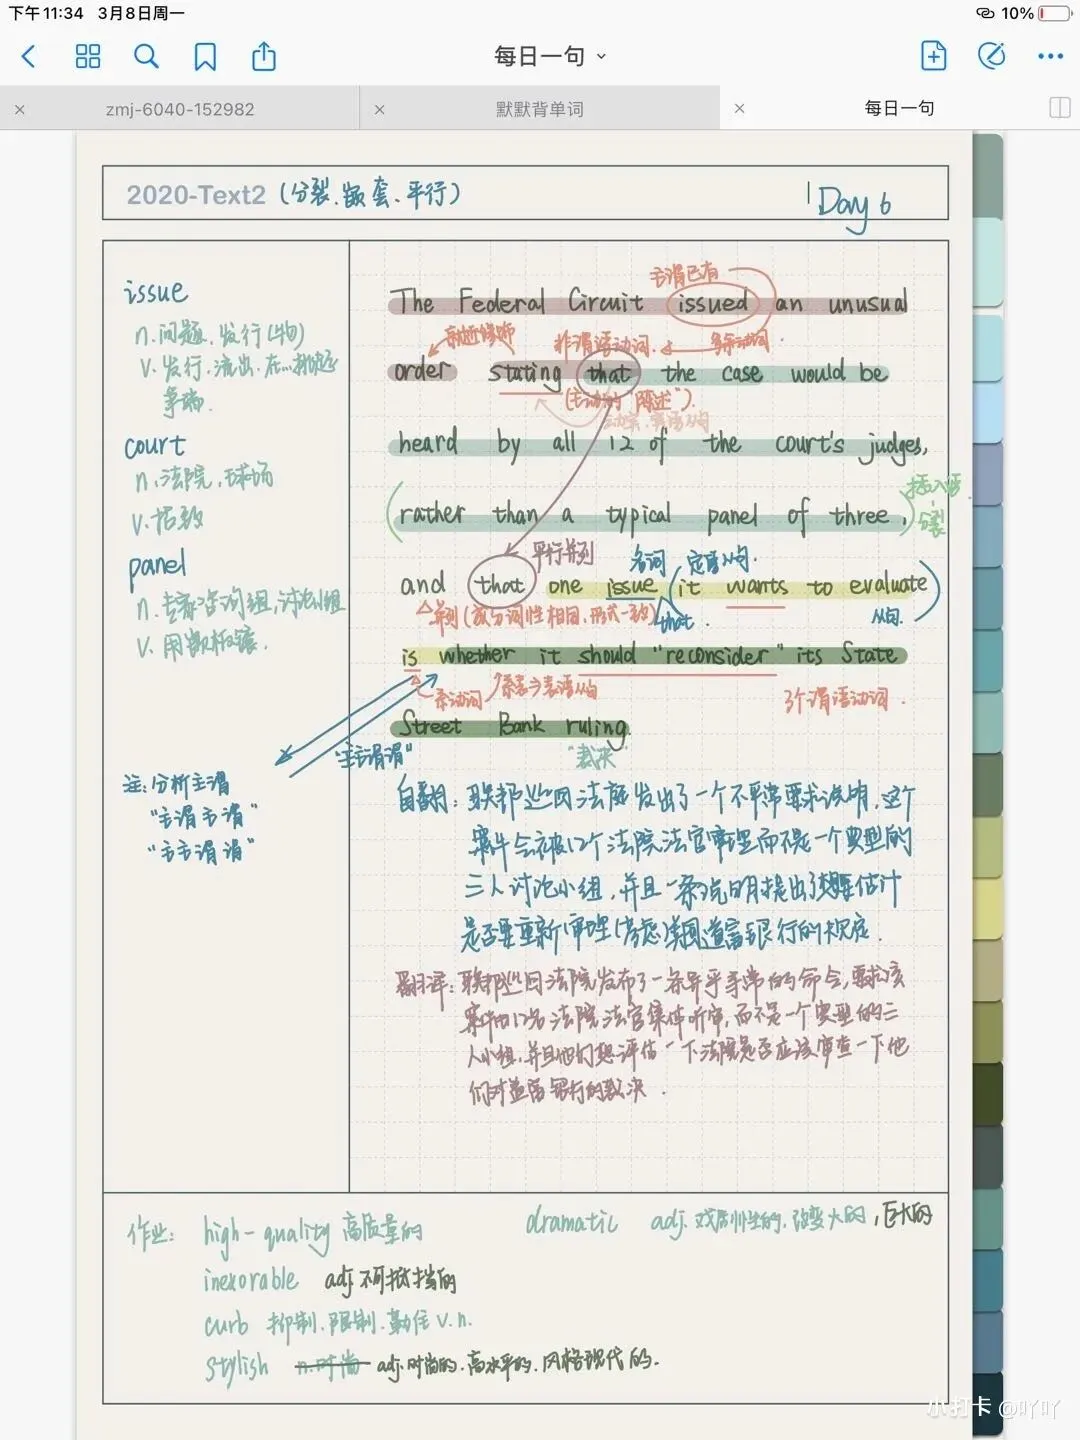 下午11:34 3月8日周一
10%
每日一句
zmj-6040-152982
默默背单词
每日一句
2020-Text2 (分裂、嵌套、平行)
Day 6
issue
n.问题、发行(物)
v.发行、流出、在…挑起
争端.
court
n.法院、球场
v.招致
panel
n.专家咨询组,讨论组
v.用嵌板镶.
注:分析主谓
"主谓主谓"
"主主谓谓"
主谓已有
The Federal Circuit issued an unusual
就近修饰 非谓语动词. 多余动词.
order stating that the case would be
(主动的"陈述").
heard by all 12 of the court's judges,
插入语.
分裂
(rather than a typical panel of three,)
平行并列 名词 定语从句.
and that one issue (it wants to evaluate)
并列(成分词性相同、形式一致) that. 从句.
is whether it should "reconsider" its State
系动词 系表→表语从句 3个谓语动词.
Street Bank ruling.
"主主谓谓" "裁决"
自翻:联邦巡回法庭发出了一个不平常要求说明,这个
案件会被12个法院法官审理而不是一个典型的
三人讨论小组,并且一条说明提出了想要估计
是否要重新审理(考虑)美国道富银行的规定.
翻译:联邦巡回法院发布了一条异乎寻常的命令,要求该
案件由12名法院法官集体听审,而不是一个典型的三
人小组,并且他们想评估一下法院是否应该审查一下他
们对道富银行的裁决.
作业: high-quality 高质量的 dramatic adj.戏剧性的.改变大的,巨大的
inexorable adj.不可抵挡的
curb 抑制.限制.勒住 v.n.
stylish n.时尚 adj.时尚的.高水平的.风格现代的.
小打卡 @吖吖